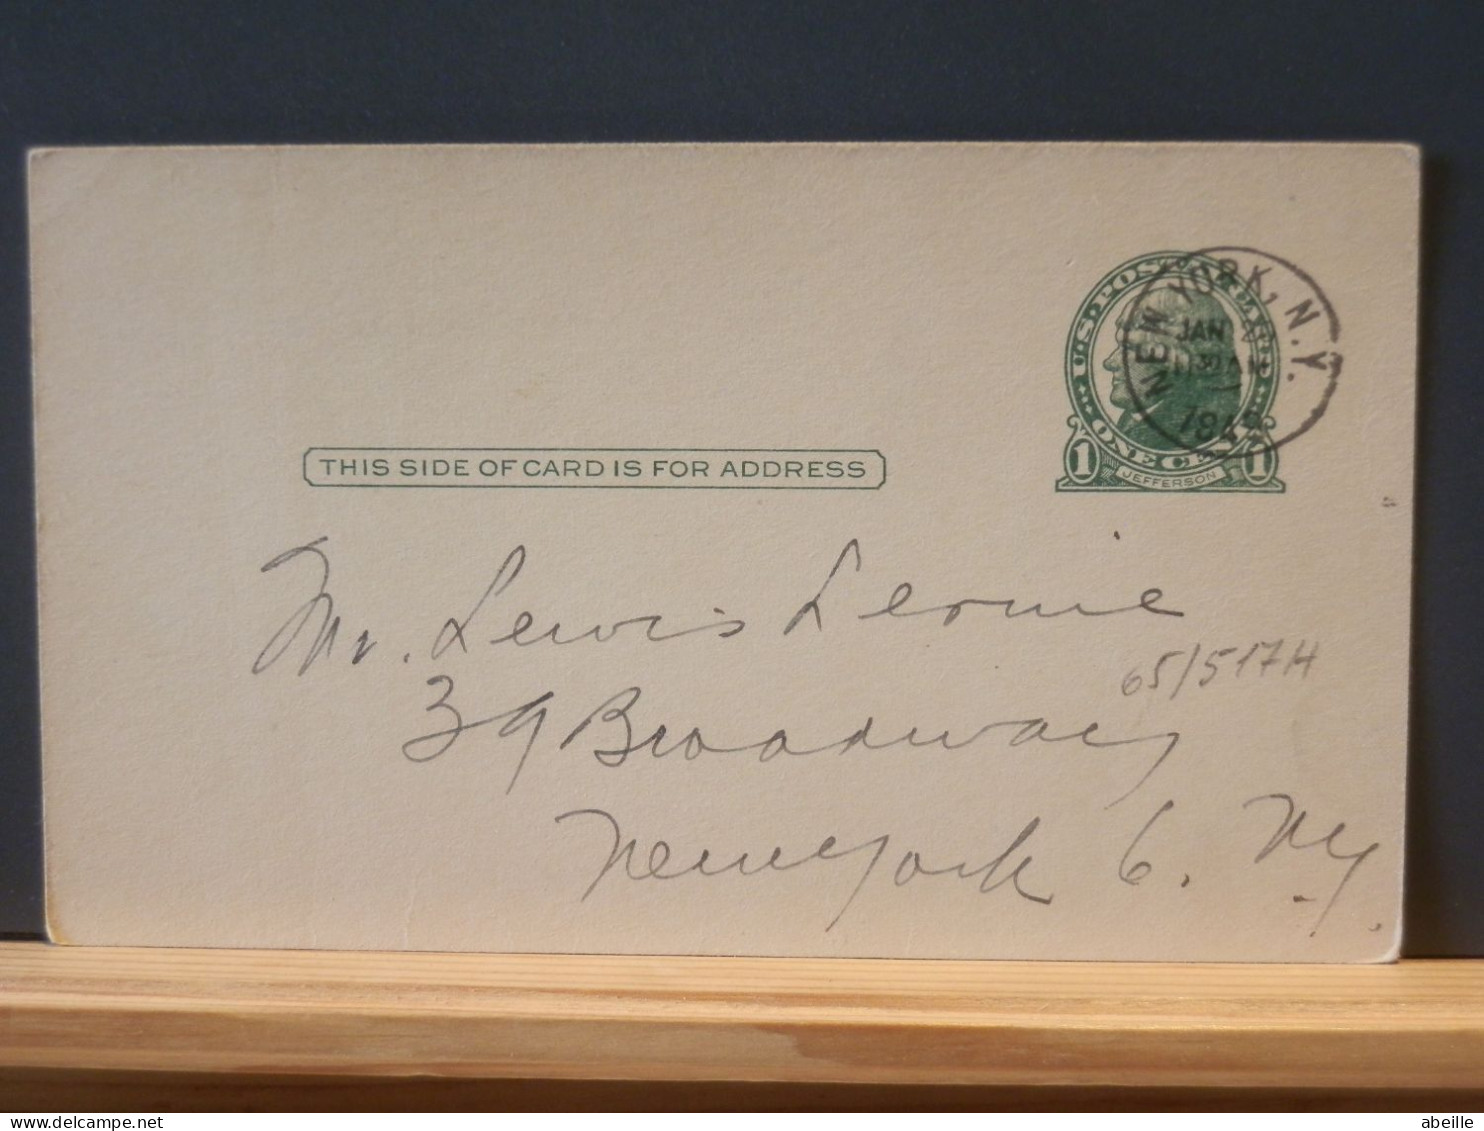 U.S. POSTAL CARD
NEW YORK, N.Y.
JAN
30 AM
ONE CENT
1 JEFFERSON 1
THIS SIDE OF CARD IS FOR ADDRESS
Mr. Lewis Lerme
65/517H
39 Broadway
New York 6. N.Y.
delcampe.net
abeille